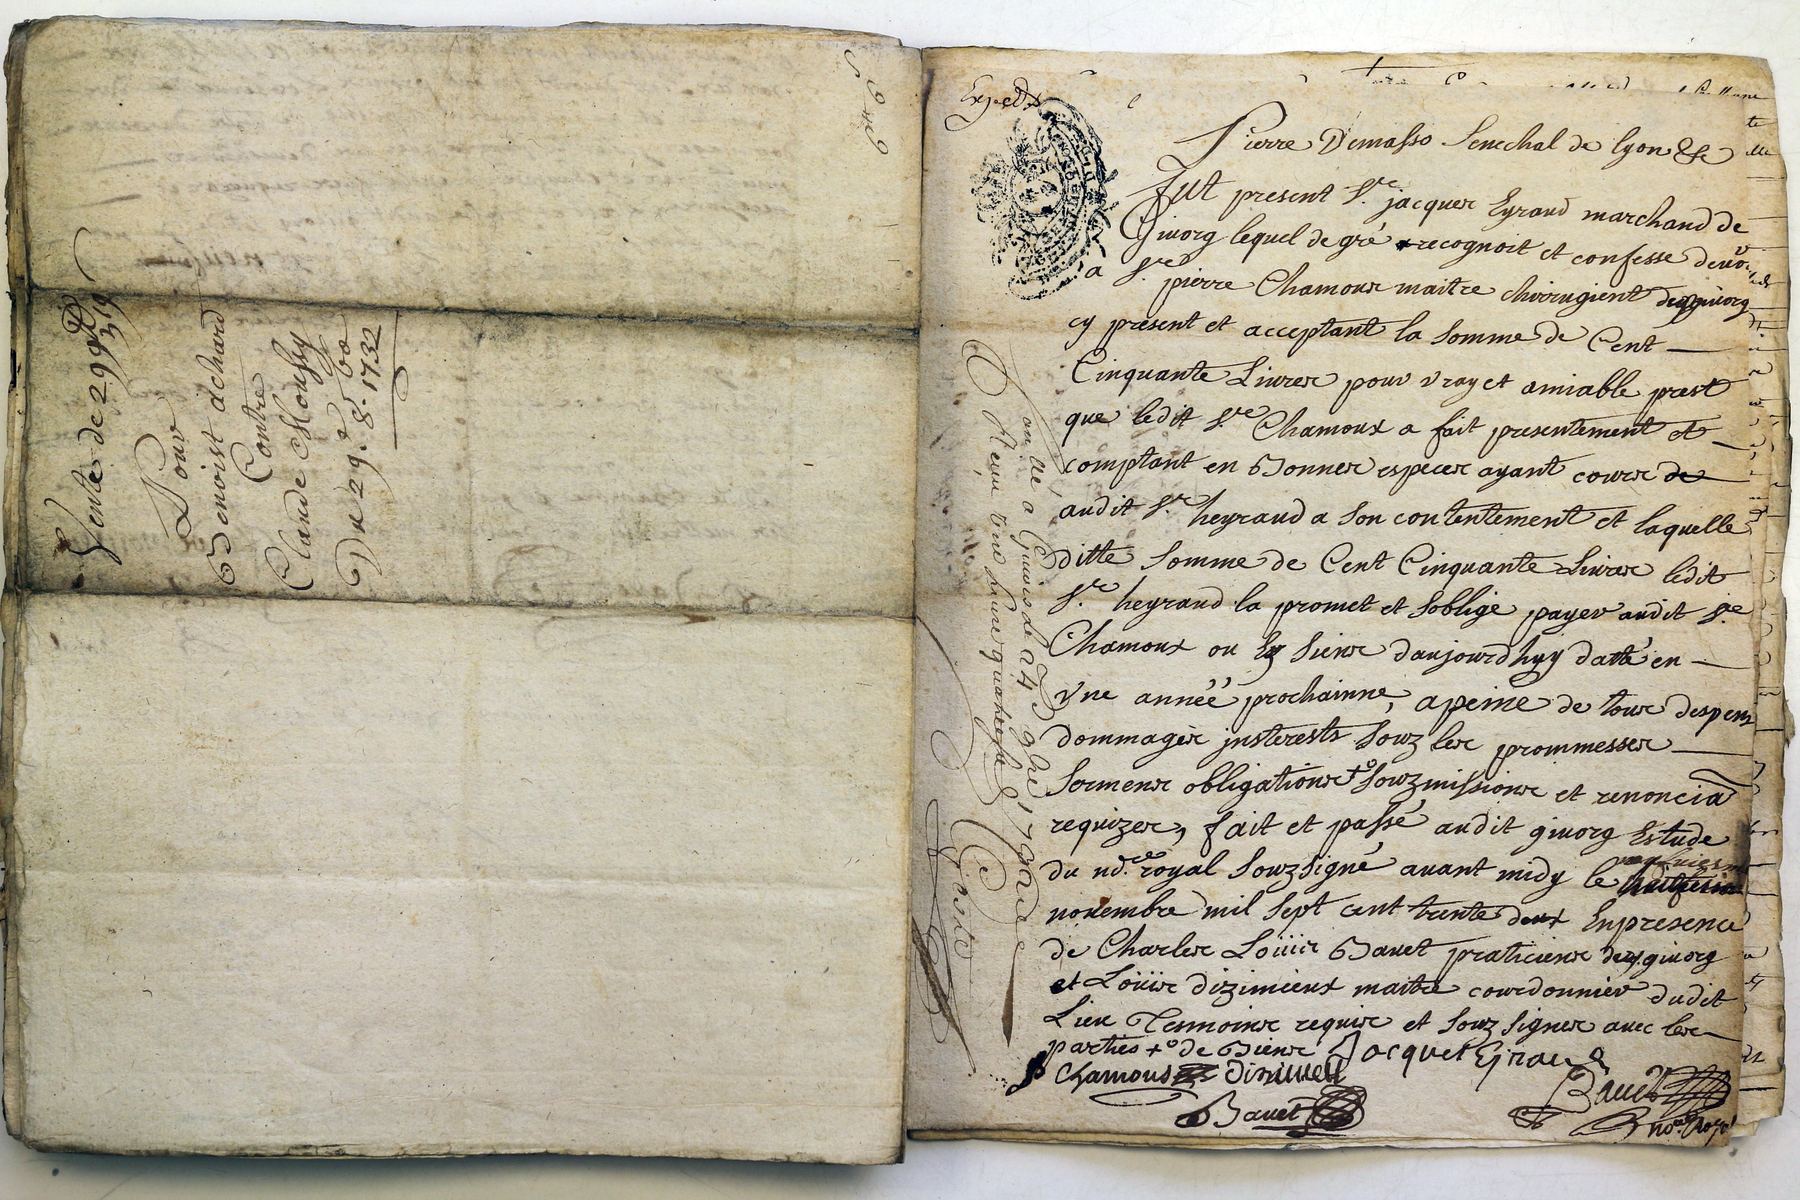 Vente de 299 lt 319
Pour
Benoist achard
Contre
Claude Moussy
Du 29e 8bre 1732
Exped.
Pierre Demasso Senechal de lyon &c
fut present Sr. jacques Eyraud marchand de
Givorg lequel de gré recognoit et confesse devoir
a Sr. pierre Chamoux maitre chirurgient dud givorg
cy present et acceptant la somme de Cent
Cinquante Livres pour vray et amiable prest
que ledit Sr. Chamoux a fait presentement et
comptant en Bonnes especes ayant cours de
audit Sr. heyraud a son contentement et laquelle
ditte somme de Cent Cinquante Livres ledit
Sr. heyraud la promet et soblige payer audit Sr
Chamoux ou Es siens daujourdhuy datté en
vne année prochainne, a peine de tous despens
dommages jnsterests souz les prommesses
sermens obligations + souzmissions et renoncia
requizes, fait et passé audit givorg Estude
du nore. royal souzsigné avant midy le
novembre mil sept cent trente deux En presence
de Charles Loüis Bauet praticiens dud. givorg
et Loüis dizimieux maitre courdonnier dudit
Lieu Tesmoins requis et souz signes avec les
parties + de Biens Jacques Eiraud
Chamoux Dizimieu
Bauet
Bauet
nore. Royal